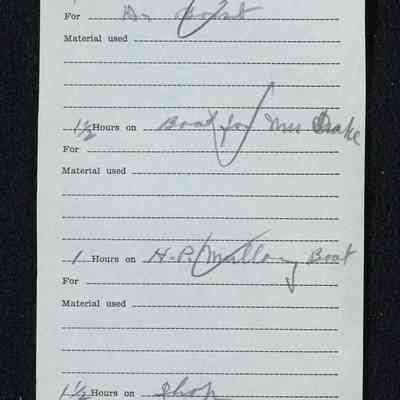 For Dr
Material used
1½ Hours on Boat for Mrs Drake
For
Material used
1 Hours on H-P. Mallory Boat
For
Material used
1½ Hours on Shop